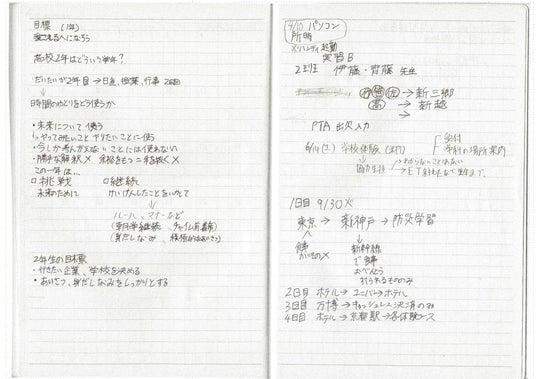 目標 (1年)
愛される人になろう
高校2年はどういう学年?
だいたいが2年目→日直、授業、行事
↓
時間のゆとりをどう使うか
・未来について使う
↳やってみたいこと、やりたいことに使う
・今しか考んがえないことには使えない
・勝手な解釈× 余裕をもつ=手を抜く×
この一年は…
□挑戦 □継続
未来のために けいけんしたことをいかして
↓
ルール、マナーなど
(朝学習継続、チャイム前着席)
(身だしなみ、積極的なあいさつ)
2年生の目標
・行きたい企業、学校を決める
・あいさつ、身だしなみをしっかりとする
4/10 パソコン
所時
起動
実習B
2班 伊藤・齊藤 先生
→新三郷
高→新越
PTA 出欠入力
6/14(土) 学校体験
受付
学科の場所案内
協力生徒
わからないことはない
1日目 9/30火
東京→新神戸→防災学習
食事
かいもの×
新幹線
で食事
おべんとう
すてられるもののみ
2日目 ホテル→ユニバ→ホテル
3日目 万博→キャッシュレス決済のみ
4日目 ホテル→京都駅→各体験コース